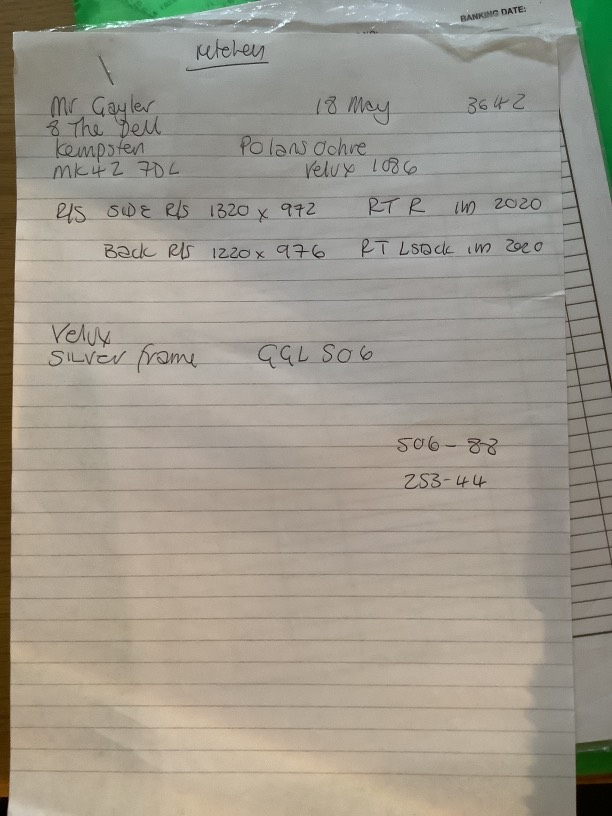 BANKING DATE:
Kitchen
Mr Gayler 18 May 3642
8 The Dell
Kempsten Polans Ochre
MK42 7DL Velux 1086
R/S SIDE R/S 1320 x 972 RT R IM 2020
Back R/S 1220 x 976 RT L Stack IM 2020
Velux
SILVER frame GGL S06
506-88
253-44